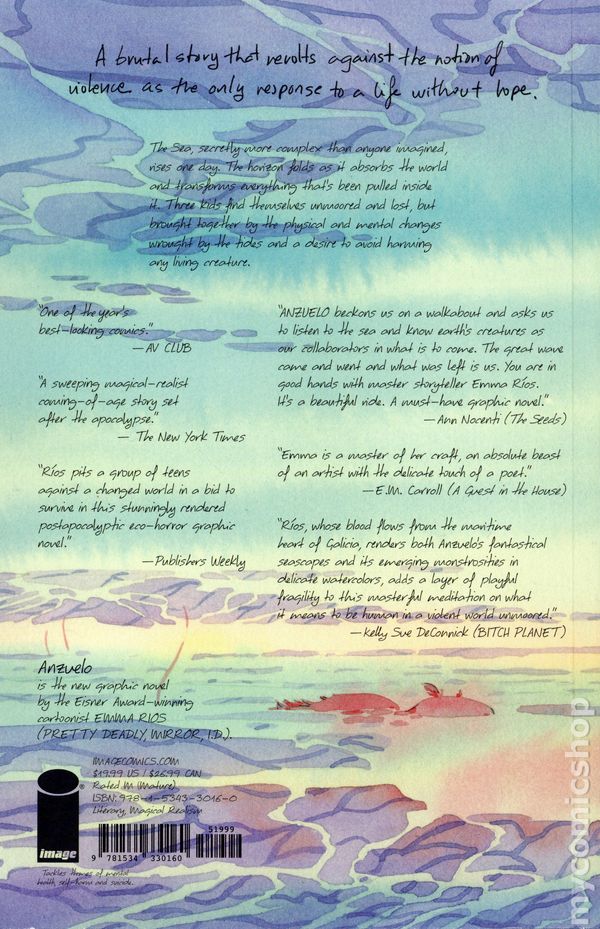 A brutal story that revolts against the notion of
violence as the only response to a life without hope.
The Sea, secretly more complex than anyone imagined,
rises one day. The horizon folds as it absorbs the world
and transforms everything that's been pulled inside
it. Three kids find themselves unmoored and lost, but
brought together by the physical and mental changes
wrought by the tides and a desire to avoid harming
any living creature.
"One of the year's
best-looking comics."
—AV CLUB
"A sweeping magical-realist
coming-of-age story set
after the apocalypse."
— The New York Times
"Ríos pits a group of teens
against a changed world in a bid to
survive in this stunningly rendered
postapocalyptic eco-horror graphic
novel."
—Publishers Weekly
"ANZUELO beckons us on a walkabout and asks us
to listen to the sea and know earth's creatures as
our collaborators in what is to come. The great wave
came and went and what was left is us. You are in
good hands with master storyteller Emma Ríos.
It's a beautiful ride. A must-have graphic novel."
—Ann Nocenti (The Seeds)
"Emma is a master of her craft, an absolute beast
of an artist with the delicate touch of a poet."
—E.M. Carroll (A Guest in the House)
"Ríos, whose blood flows from the maritime
heart of Galicia, renders both Anzuelo's fantastical
seascapes and its emerging monstrosities in
delicate watercolors, adds a layer of playful
fragility to this masterful meditation on what
it means to be human in a violent world unmoored."
—Kelly Sue DeConnick (BITCH PLANET)
Anzuelo
is the new graphic novel
by the Eisner Award-winning
cartoonist EMMA RIOS
(PRETTY DEADLY, MIRROR, I.D.).
IMAGECOMICS.COM
$19.99 US / $26.99 CAN
Rated M (Mature)
ISBN: 978-1-5343-3016-0
Literary, Magical Realism
51999
9 781534 330160
image
®
Tackles themes of mental
health, self-harm and suicide.
mycomicshop